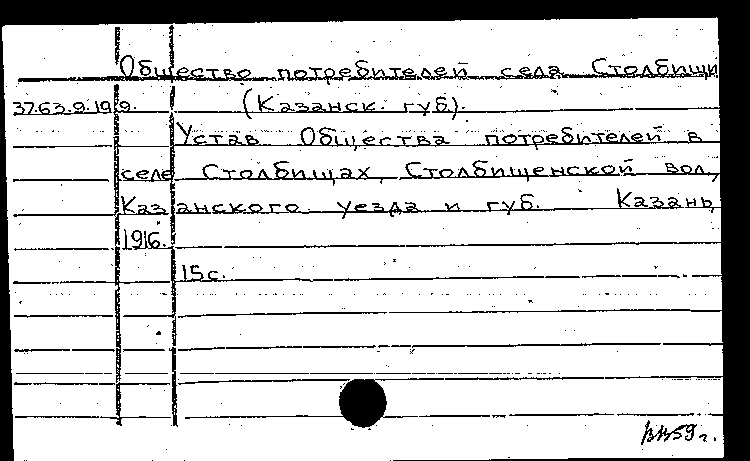 Общество потребителей села Столбищи
37.63.9.199. (Казанск. губ).
Устав Общества потребителей в
селе Столбищах, Столбищенской вол.,
Казанского уезда и губ. Казань,
1916.
15 с.
59 г.